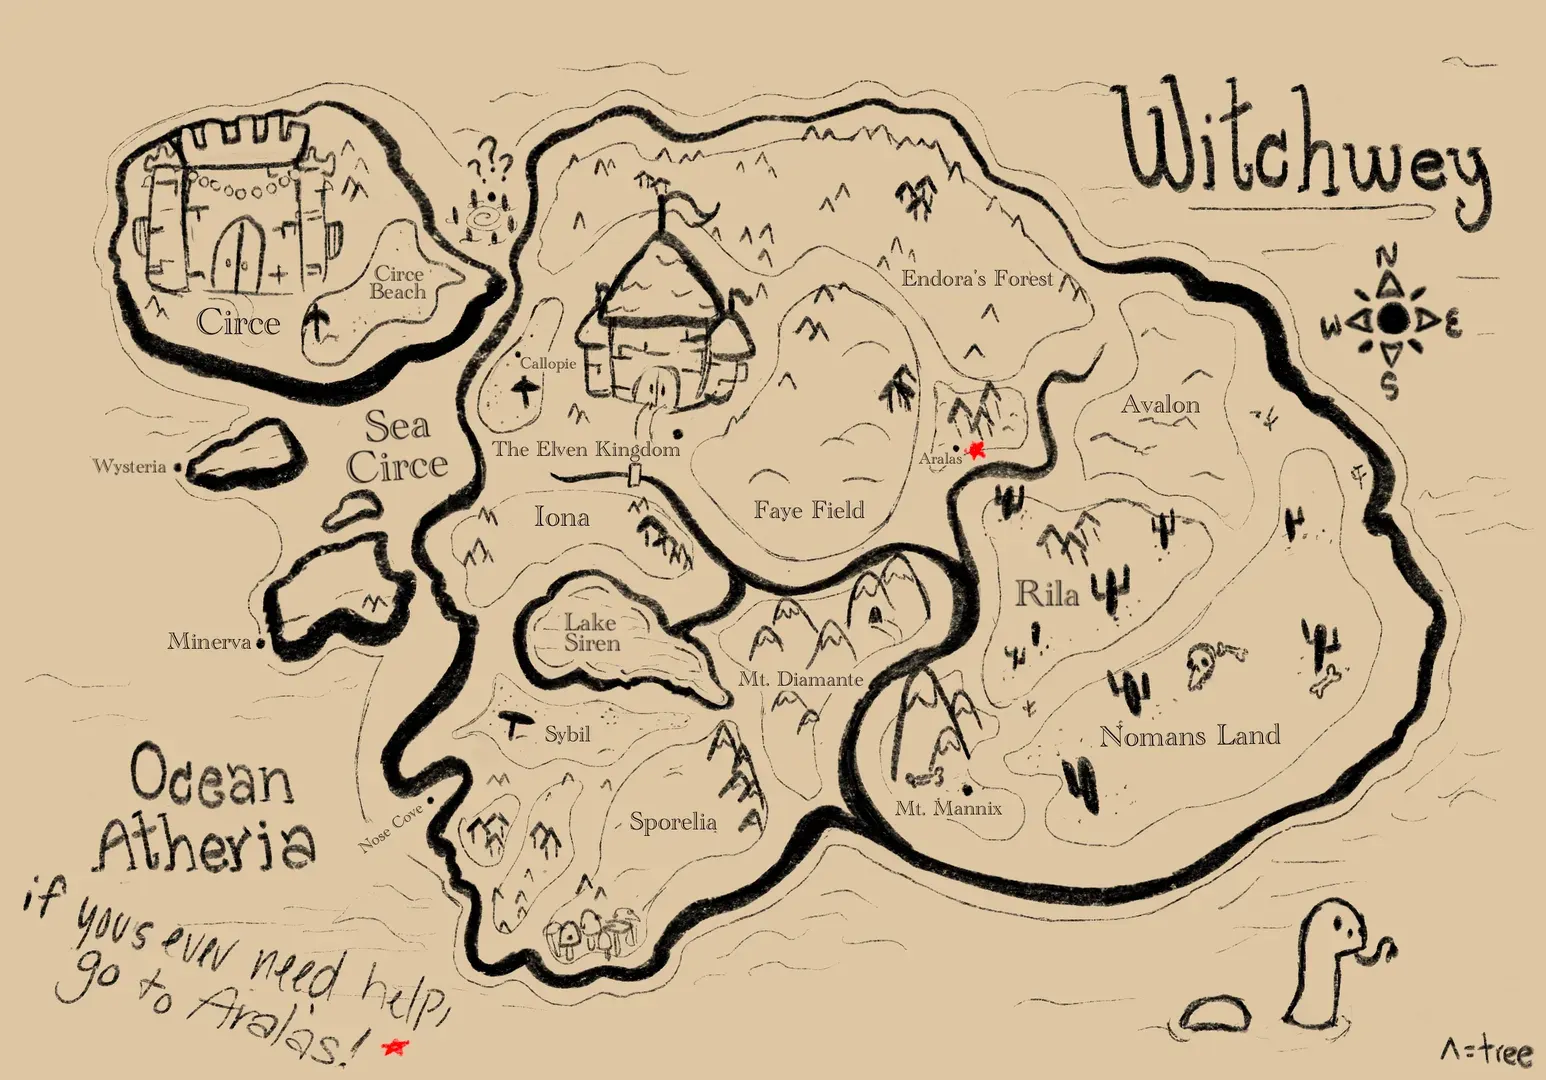 Witchwey
???
N
W E
S
Circe
Beach
Circe
Endora's Forest
Callopie
Avalon
Sea
Circe
The Elven Kingdom
Aralas
Wysteria
Iona
Faye Field
Rila
Lake
Siren
Minerva
Mt. Diamante
Sybil
Nomans Land
Ocean
Atheria
Nose Cove
Sporelia
Mt. Mannix
if yous ever need help,
go to Aralas!
^=tree